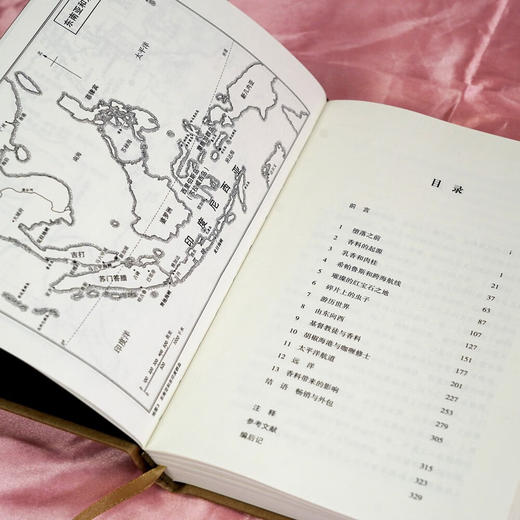 东南亚和
北
太平洋
菲律宾
新几内亚
南海
婆罗洲
印度尼西亚
吉打
苏门答腊
印度洋
目 录
前 言 i
1 堕落之前 1
2 香料的起源 21
3 乳香和肉桂 37
4 希帕鲁斯和跨海航线 63
5 璀璨的红宝石之地 87
6 碎片上的虫子 107
7 游历世界 127
8 由东向西 151
9 基督教徒与香料 177
10 胡椒海港与咖喱修士 201
11 太平洋航道 227
12 远 洋 253
13 香料带来的影响 279
结 语 畅销与外包 305
注 释 315
参考文献 323
编后记 329